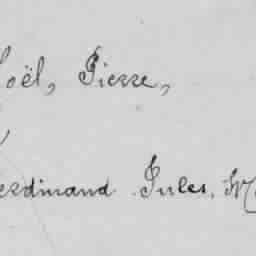 oël, Pierre,
erdinand Jules,